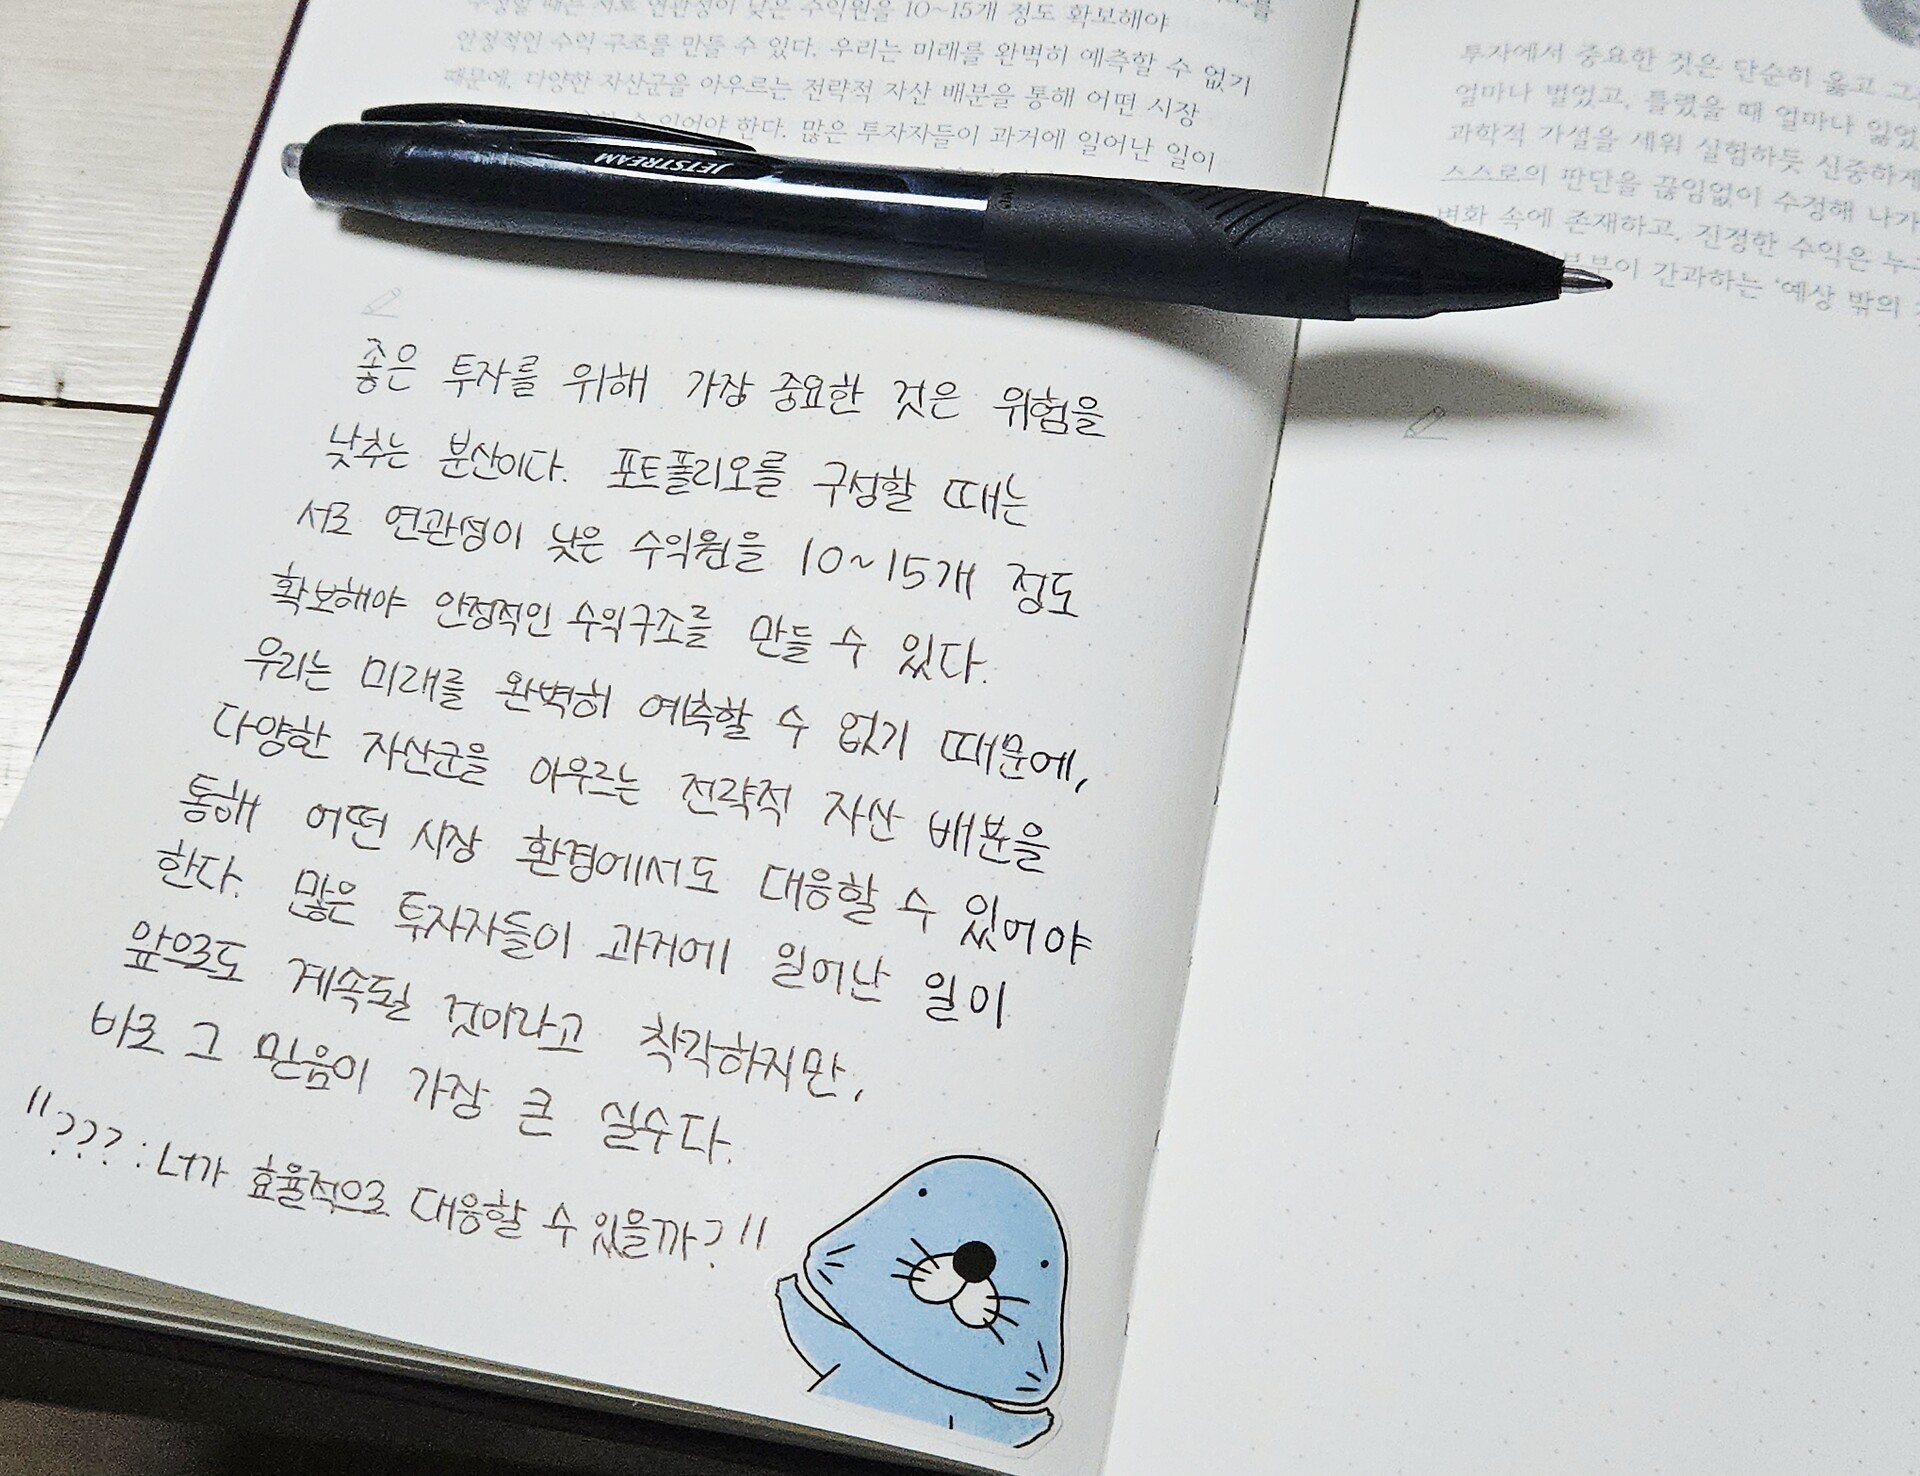 수성할 때는 서로 연관성이 낮은 수익원을 10~15개 정도 확보해야
안정적인 수익 구조를 만들 수 있다. 우리는 미래를 완벽히 예측할 수 없기
때문에, 다양한 자산군을 아우르는 전략적 자산 배분을 통해 어떤 시장
수 있어야 한다. 많은 투자자들이 과거에 일어난 일이
JETSTREAM
좋은 투자를 위해 가장 중요한 것은 위험을
낮추는 분산이다. 포트폴리오를 구성할 때는
서로 연관성이 낮은 수익원을 10~15개 정도
확보해야 안정적인 수익구조를 만들 수 있다.
우리는 미래를 완벽히 예측할 수 없기 때문에,
다양한 자산군을 아우르는 전략적 자산 배분을
통해 어떤 시장 환경에서도 대응할 수 있어야
한다. 많은 투자자들이 과거에 일어난 일이
앞으로도 계속될 것이라고 착각하지만,
바로 그 믿음이 가장 큰 실수다.
"??? : 나가 효율적으로 대응할 수 있을까?"
투자에서 중요한 것은 단순히 옳고
얼마나 벌었고, 틀렸을 때 얼마나 잃었
과학적 가설을 세워 실험하듯 신중하게
스스로의 판단을 끊임없이 수정해 나가
변화 속에 존재하고, 진정한 수익은
간과하는 '예상 밖의